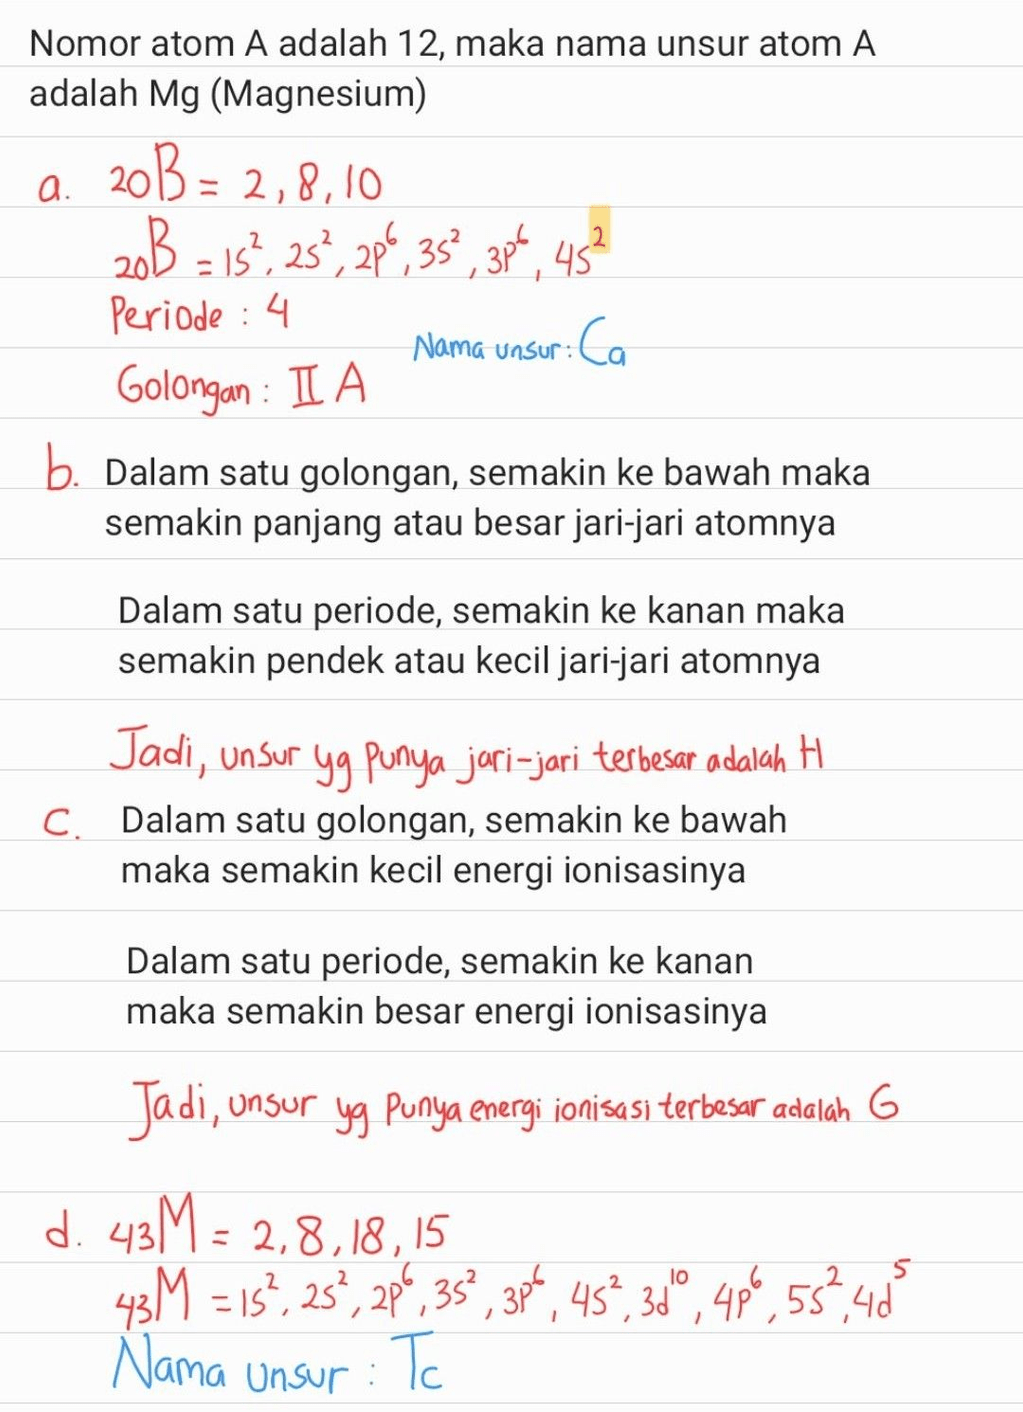 Nomor atom A adalah 12, maka nama unsur atom A
adalah Mg (Magnesium)
a. ₂₀B = 2, 8, 10
₂₀B = 1s², 2s², 2p⁶, 3s², 3p⁶, 4s²
Periode : 4
Nama unsur : Ca
Golongan : II A
b. Dalam satu golongan, semakin ke bawah maka
semakin panjang atau besar jari-jari atomnya
Dalam satu periode, semakin ke kanan maka
semakin pendek atau kecil jari-jari atomnya
Jadi, unsur yg Punya jari-jari terbesar adalah H
C. Dalam satu golongan, semakin ke bawah
maka semakin kecil energi ionisasinya
Dalam satu periode, semakin ke kanan
maka semakin besar energi ionisasinya
Jadi, unsur yg Punya energi ionisasi terbesar adalah G
d. ₄₃M = 2, 8, 18, 15
₄₃M = 1s², 2s², 2p⁶, 3s², 3p⁶, 4s², 3d¹⁰, 4p⁶, 5s², 4d⁵
Nama unsur : Tc